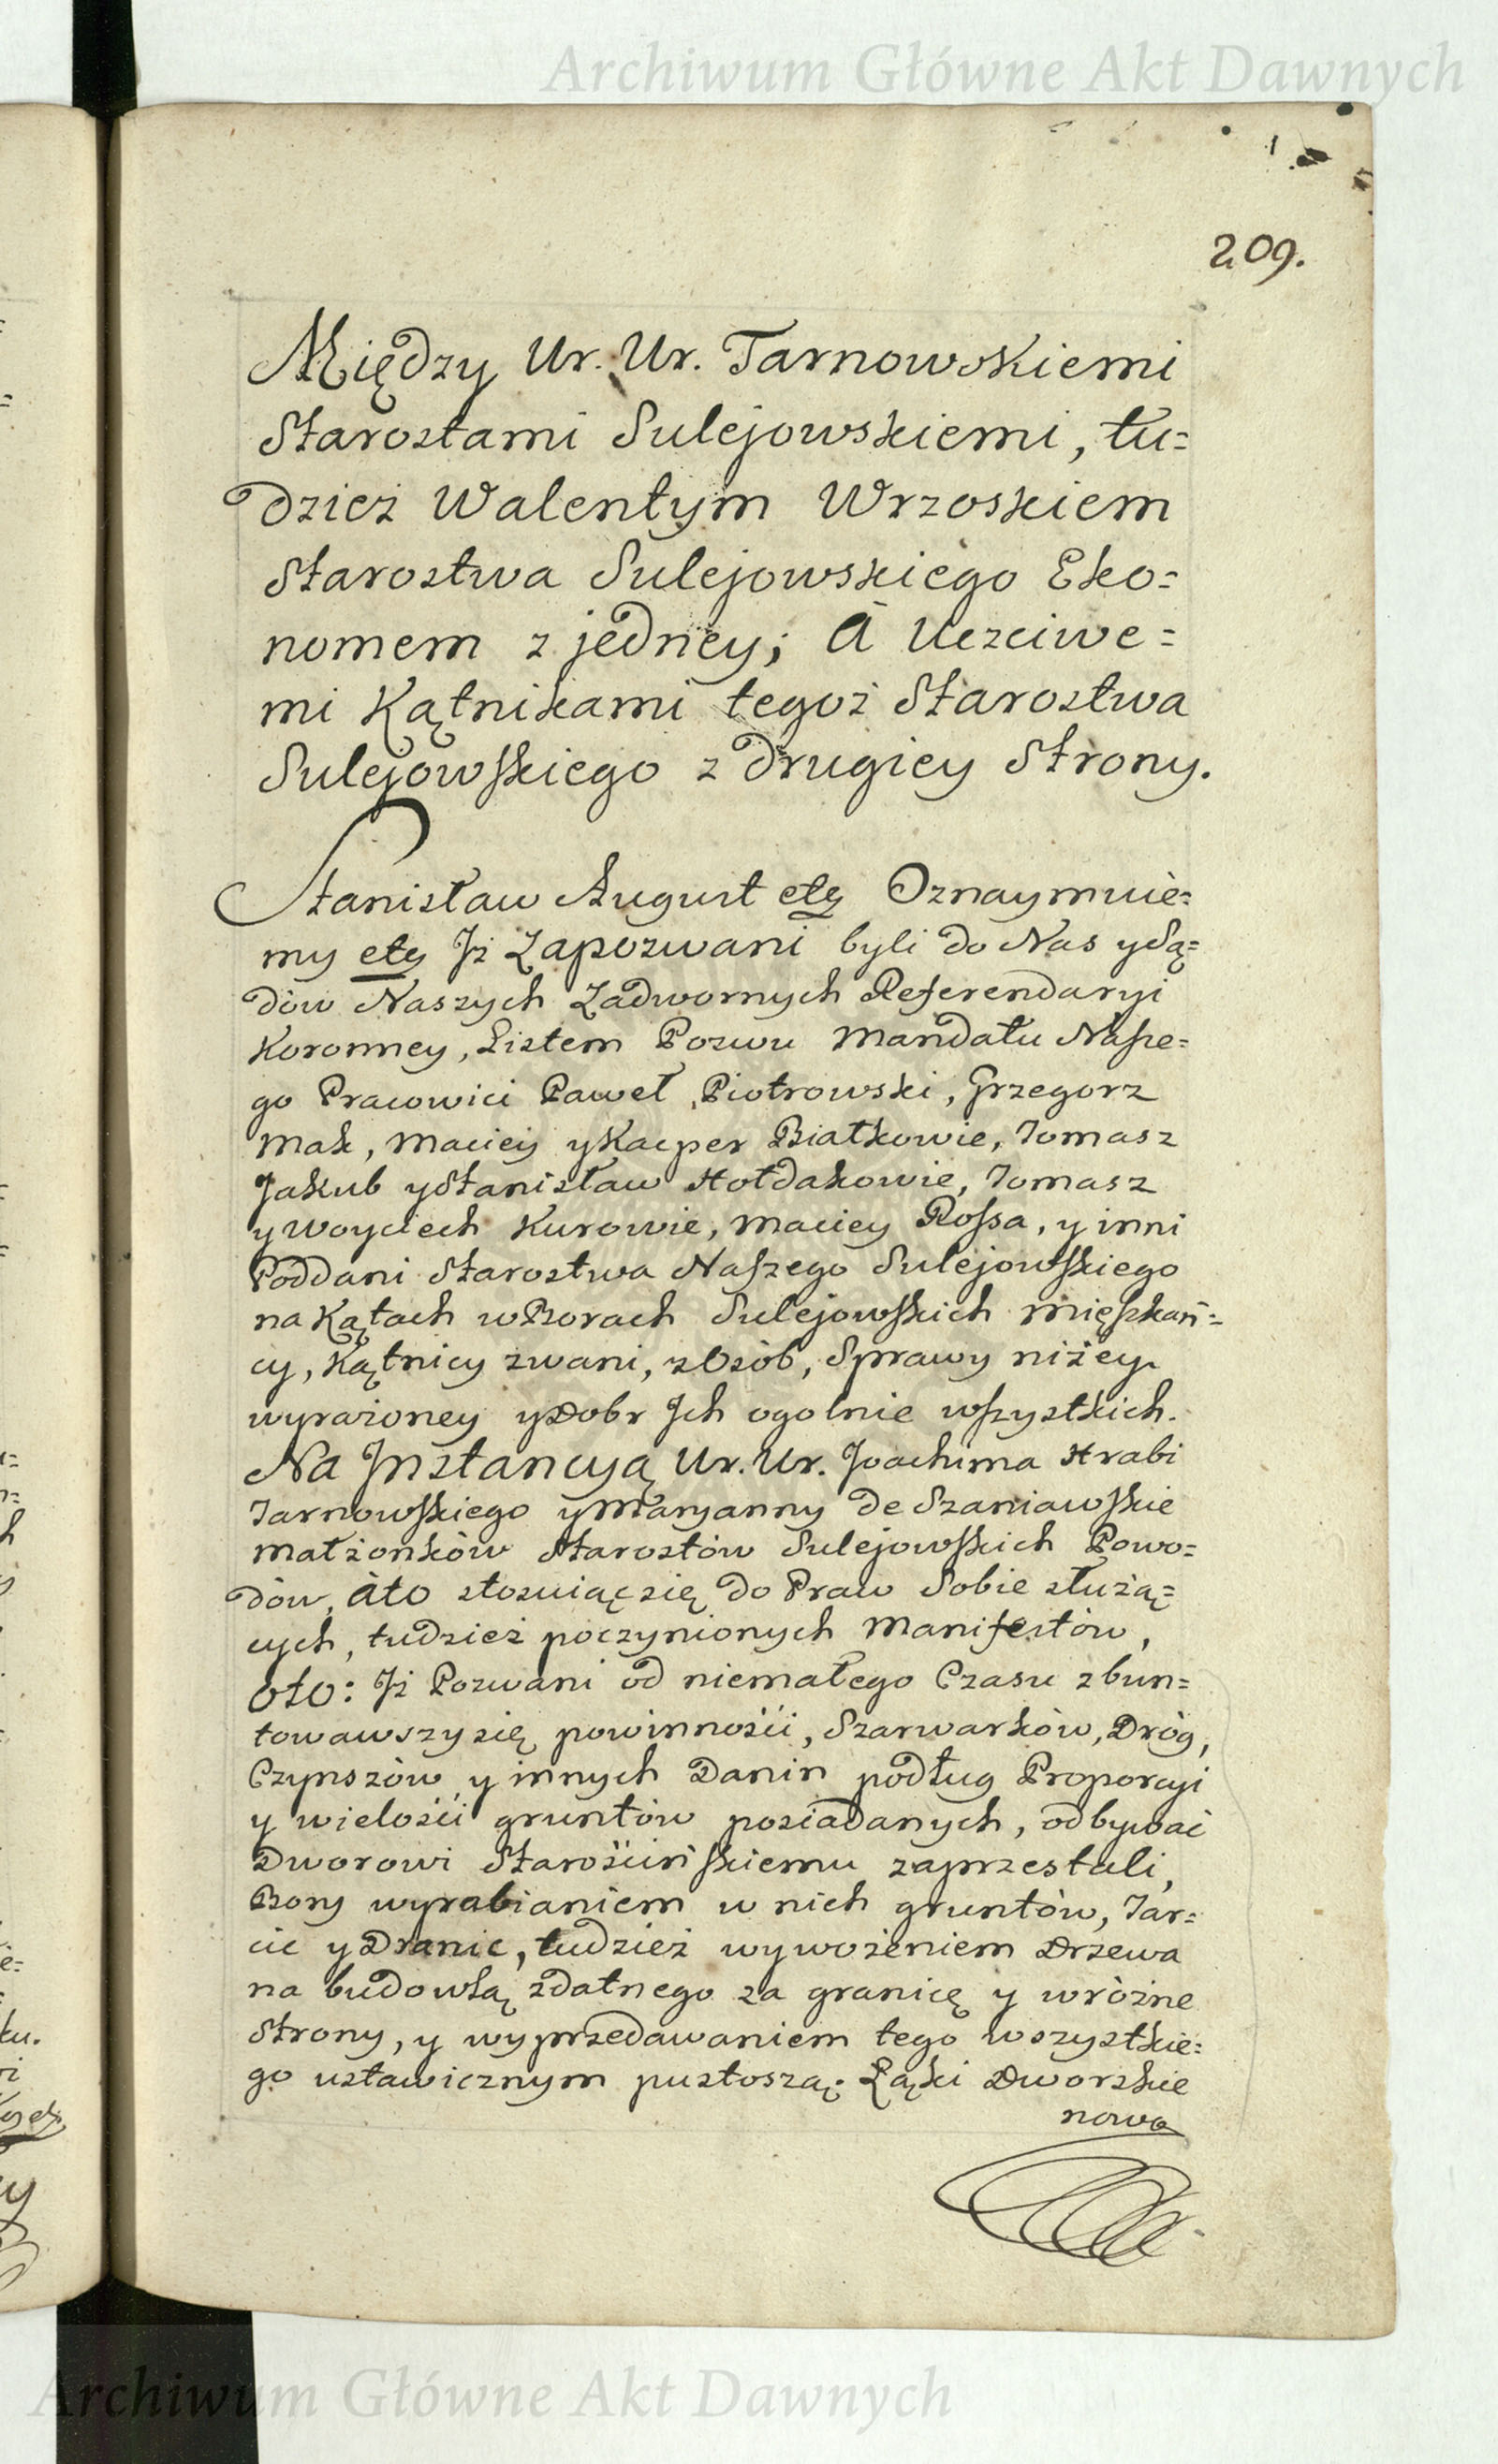 Archiwum Główne Akt Dawnych
209.
Między Ur. Ur. Tarnowskiemi
Starostami Sulejowskiemi, tu=
dzież Walentym Wrzoskiem
Starostwa Sulejowskiego Eko=
nomem z jedney; à Uczciwe=
mi Kątnikami tegoż Starostwa
Sulejowskiego z drugiey Strony.
Stanisław August etc Oznaymuie=
my etc Iż Zapozwani byli do Nas y Są=
dów Naszych Zadwornych Referendaryi
Koronney, Listem Pozwu Mandatu Nasze=
go Pracowici Paweł Piotrowski, Grzegorz
Mak, Maciey y Kacper Białkowie, Tomasz
Jakub y Stanisław Hołdakowie, Tomasz
y Woyciech Kurowie, Maciey Rossa, y inni
Poddani Starostwa Naszego Sulejowskiego
na Kątach w Borach Sulejowskich mięszkań=
cy, Kątnicy zwani, z Osób, Sprawy niżey
wyrażoney y Dobr Ich ogolnie wszystkich.
Na Instancyą Ur. Ur. Joachima Hrabi
Tarnowskiego y Maryanny de Szaniawskie
małżonków Starostów Sulejowskich Powo=
dów, àto stosuiąc się do Praw Sobie służą=
cych, tudzież poczynionych Manifestów,
oto: Iż Pozwani od niemałego Czasu zbun=
towawszy się powinności, Szarwarków, Dróg,
Czynszów y innych Danin podług Proporcyi
y wielości gruntów posiadanych, odbywać
Dworowi Starościńskiemu zaprzestali,
Bory wyrabianiem w nich gruntów, Tar=
cic y Dranic, tudzież wywożeniem Drzewa
na budowlą zdatnego za granicę y w różne
Strony, y wyprzedawaniem tego wszystkie=
go ustawicznym pustoszą; Łąki Dworskie
nowo
Archiwum Główne Akt Dawnych